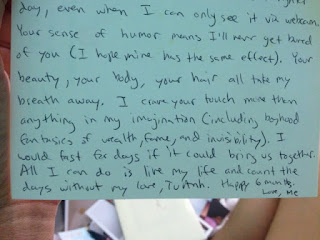 day, even when I can only see it via webcam.
Your sense of humor means I'll never get bored
of you (I hope mine has the same effect). Your
beauty, your body, your hair all take my
breath away. I crave your touch more than
anything in my imagination (including boyhood
fantasies of wealth, fame, and invisibility). I
would fast for days if it could bring us together.
All I can do is live my life and count the
days without my love, Tu Anh. Happy 6 months.
Love, Me